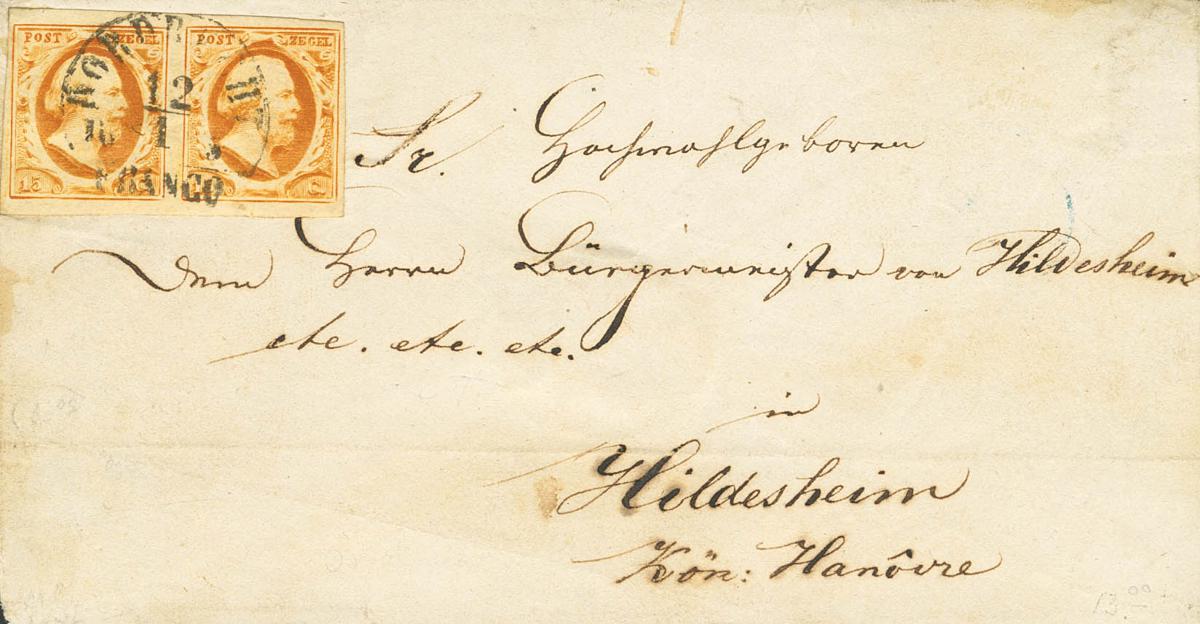 POST ZEGEL POST ZEGEL
12
1
FRANCO
15
Sr. Hochwohlgeboren
Dem Herrn Bürgermeister von Hildesheim
etc. etc. etc.
in
Hildesheim
Kön: Hanôvre
13.00